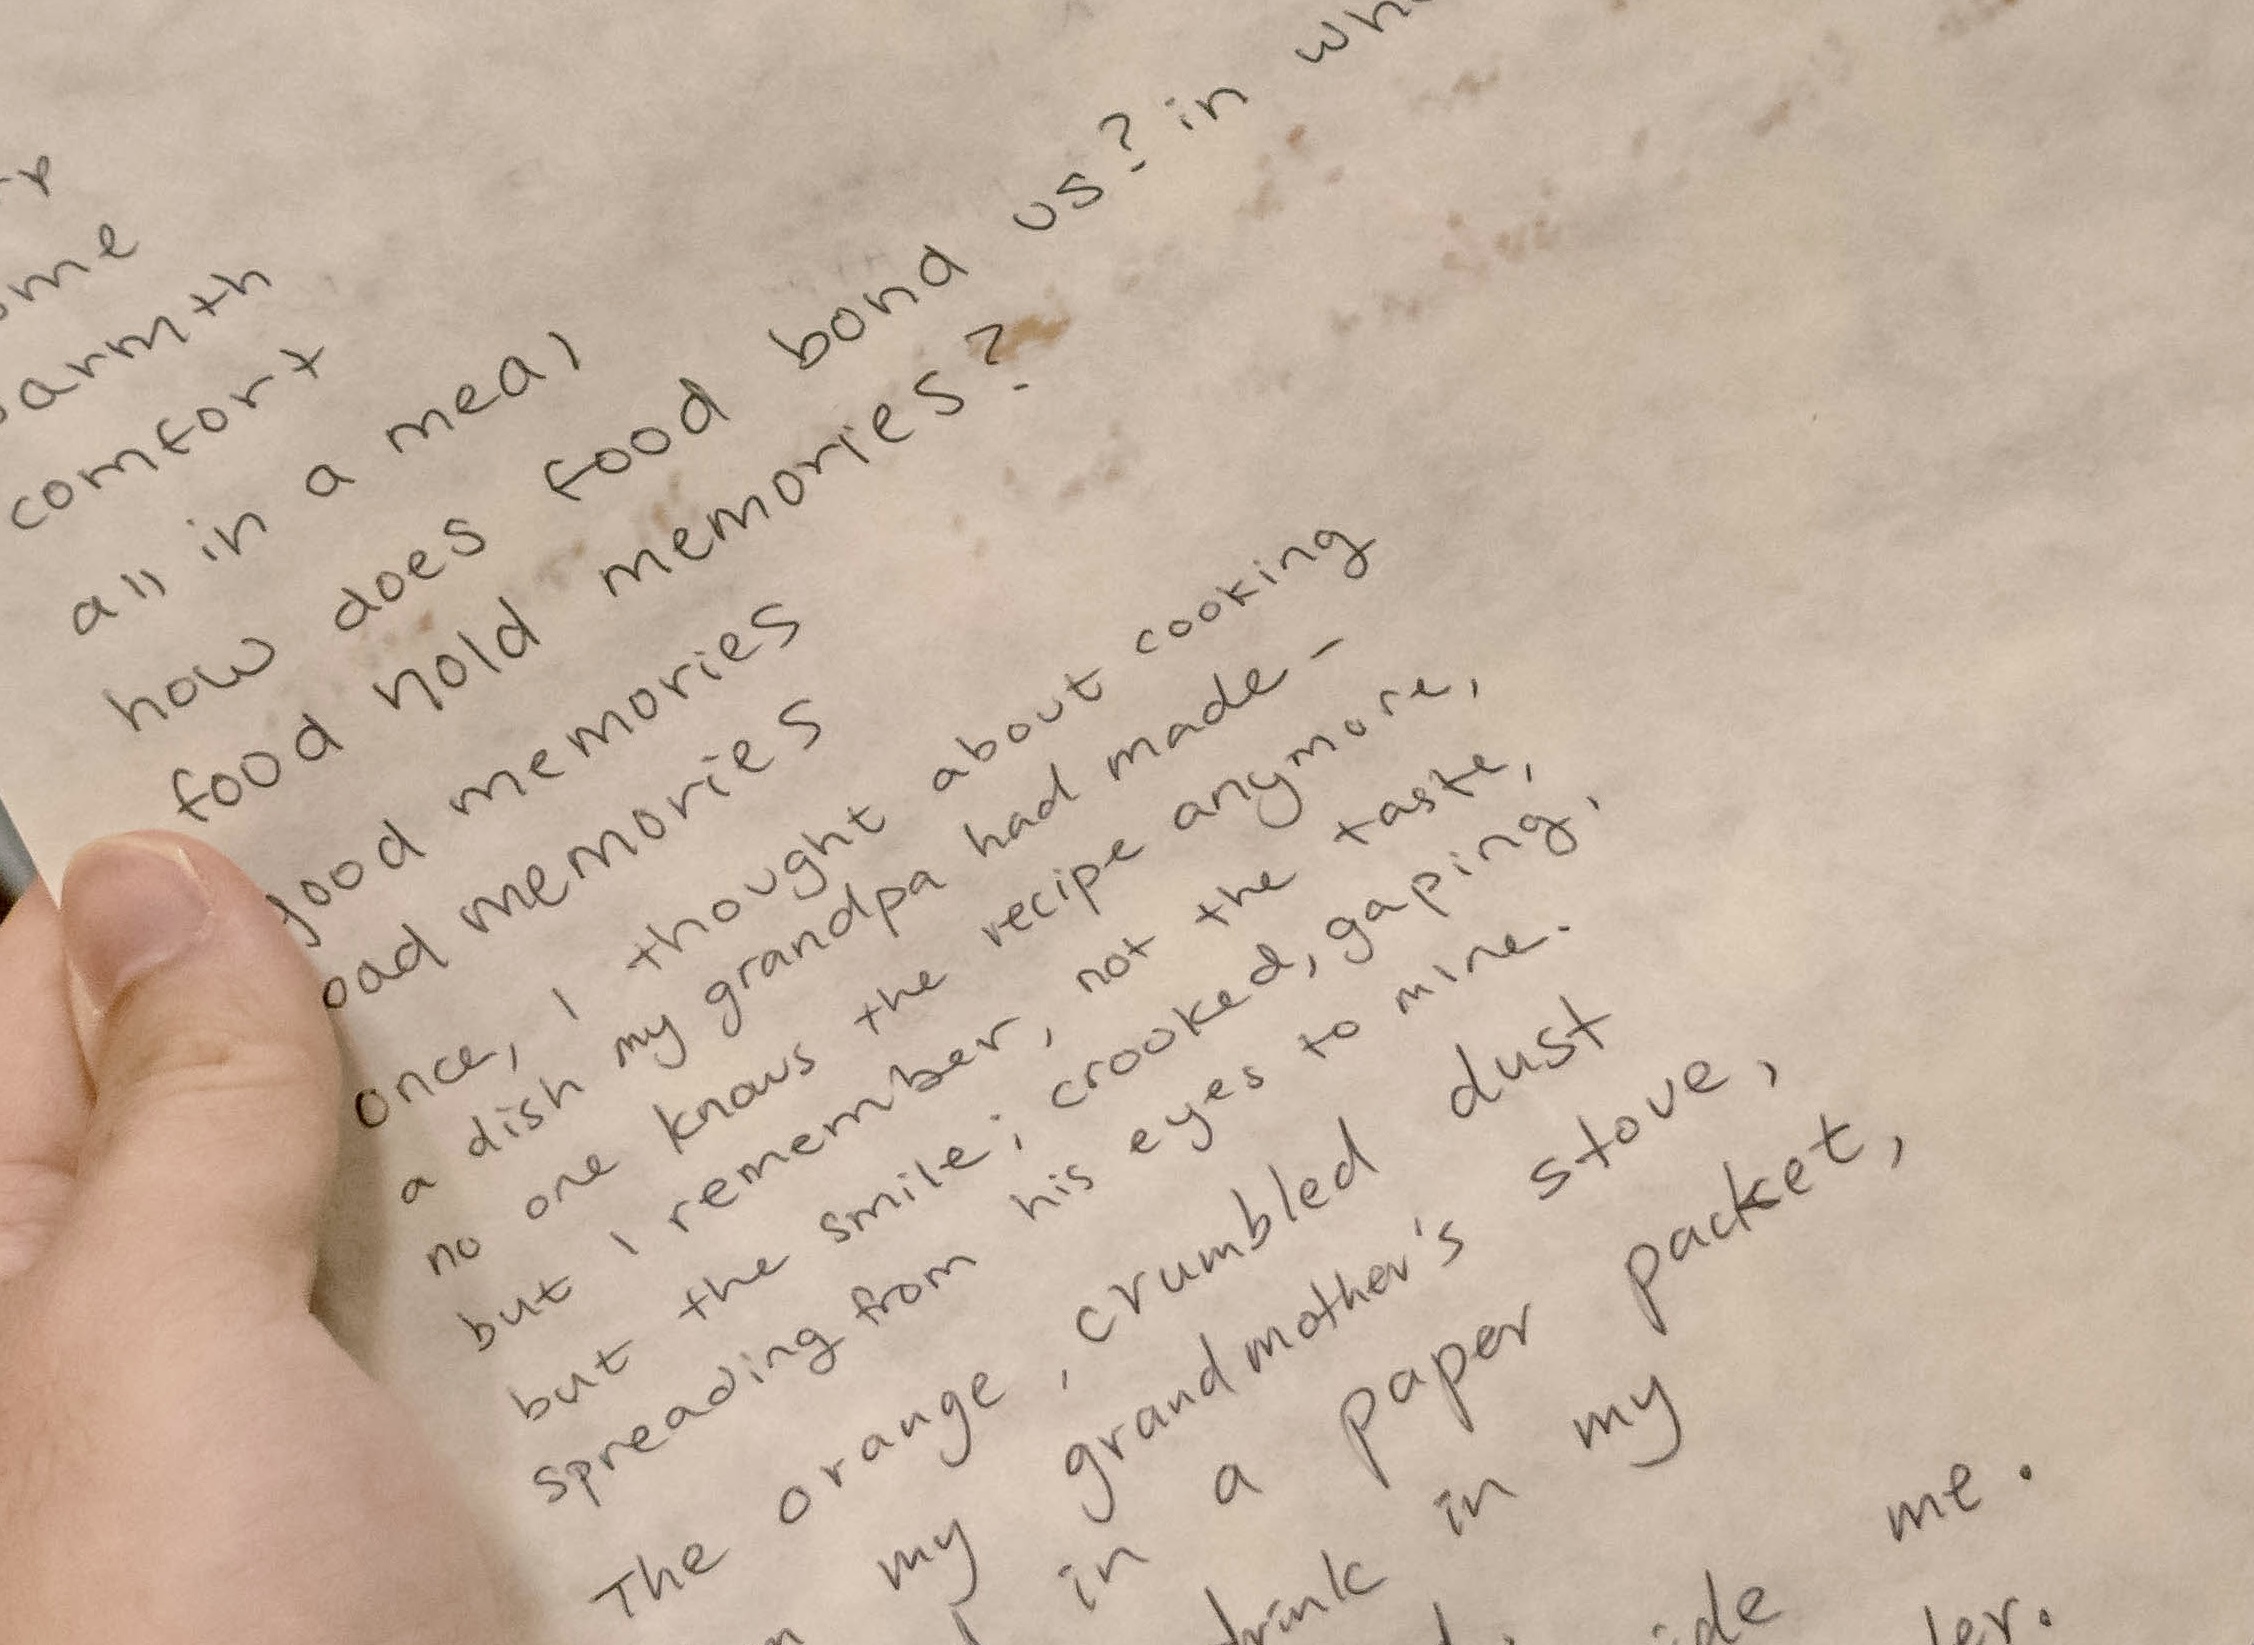 comfort
all in a meal
how does food bond us? in
food hold memories?
good memories
bad memories
once, I thought about cooking
a dish my grandpa had made-
no one knows the recipe anymore,
but I remember, not the taste,
but the smile; crooked, gaping,
spreading from his eyes to mine.
The orange, crumbled dust
my grandmother's stove,
in a paper packet,
in my
me.